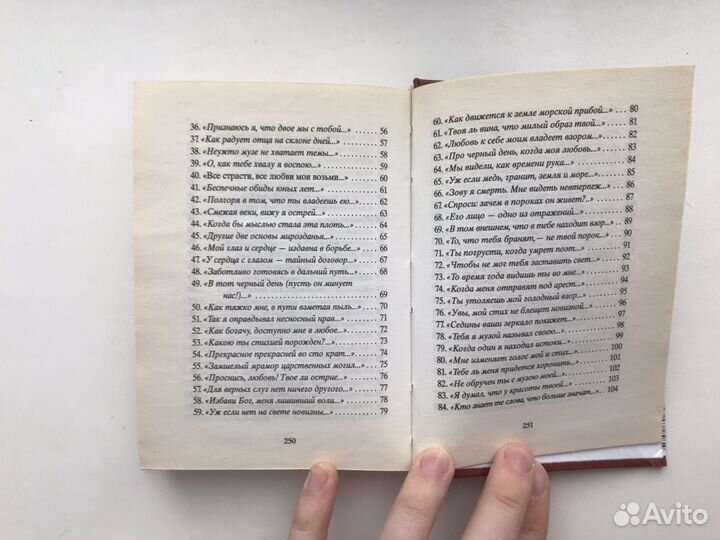 36. «Признаюсь я, что двое мы с тобой...» ........ 56
37. «Как радует отца на склоне дней...» ........ 57
38. «Неужто музе не хватает темы...» ........ 58
39. «О, как тебе хвалу я воспою...» ........ 59
40. «Все страсти, все любви мои возьми...» ........ 60
41. «Беспечные обиды юных лет...» ........ 61
42. «Полгоря в том, что ты владеешь ею...» ........ 62
43. «Смежая веки, вижу я острей...» ........ 63
44. «Когда бы мыслью стала эта плоть...» ........ 64
45. «Другие две основы мирозданья...» ........ 65
46. «Мой глаз и сердце — издавна в борьбе...» ........ 66
47. «У сердца с глазом — тайный договор...» ........ 67
48. «Заботливо готовясь в дальний путь...» ........ 68
49. «В тот черный день (пусть он минует
нас!)...» ........ 69
50. «Как тяжко мне, в пути взметая пыль...» ........ 70
51. «Так я оправдывал несносный нрав...» ........ 71
52. «Как богачу, доступно мне в любое...» ........ 72
53. «Какою ты стихией порожден?..» ........ 73
54. «Прекрасное прекрасней во сто крат...» ........ 74
55. «Замшелый мрамор царственных могил...» ........ 75
56. «Проснись, любовь! Твое ли острие...» ........ 76
57. «Для верных слуг нет ничего другого...» ........ 77
58. «Избави Бог, меня лишивший воли...» ........ 78
59. «Уж если нет на свете новизны...» ........ 79
250
60. «Как движется к земле морской прибой...» ... 80
61. «Твоя ль вина, что милый образ твой...» ........ 81
62. «Любовь к себе моим владеет взором...» ........ 82
63. «Про черный день, когда моя любовь...» ........ 83
64. «Мы видели, как времени рука...» ........ 84
65. «Уж если медь, гранит, земля и море...» ........ 85
66. «Зову я смерть. Мне видеть невтерпеж...» ........ 86
67. «Спроси: зачем в пороках он живет?..» ........ 87
68. «Его лицо — одно из отражений...» ........ 88
69. «В том внешнем, что в тебе находит взор...» ........ 89
70. «То, что тебя бранят, — не твой порок...» ........ 90
71. «Ты погрусти, когда умрет поэт...» ........ 91
72. «Чтобы не мог тебя заставить свет...» ........ 92
73. «То время года видишь ты во мне...» ........ 93
74. «Когда меня отправят под арест...» ........ 94
75. «Ты утоляешь мой голодный взор...» ........ 95
76. «Увы, мой стих не блещет новизной...» ........ 96
77. «Седины ваши зеркало покажет...» ........ 97
78. «Тебя я музой называл своею...» ........ 98
79. «Когда один я находил истоки...» ........ 99
80. «Мне изменяет голос мой и стих...» ........ 100
81. «Тебе ль меня придется хоронить...» ........ 101
82. «Не обручен ты с музою моей...» ........ 102
83. «Я думал, что у красоты твоей...» ........ 103
84. «Кто знает те слова, что больше значат...» ... 104
251
Avito